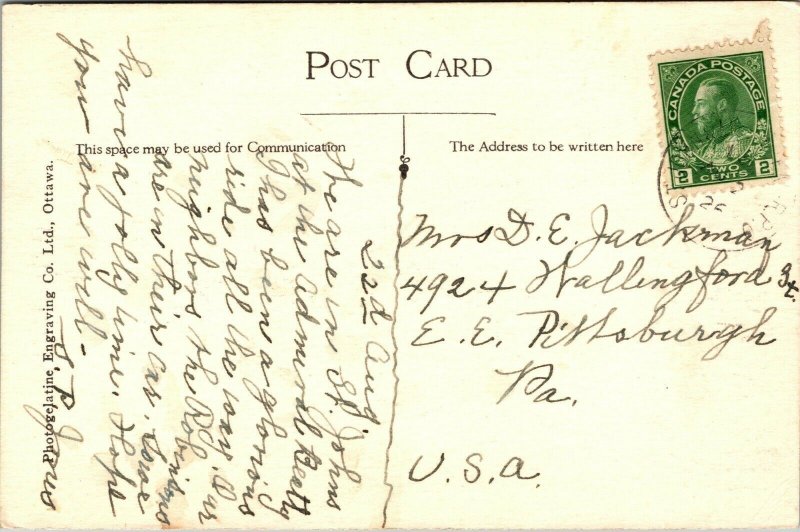 POST CARD
This space may be used for Communication
The Address to be written here
CANADA POSTAGE
2 TWO CENTS 2
22d Aug
We are in St. Johns
at the Admiral Beatty
Has been a glorious
ride all the way. Our
neighbors the Robinsons
are in their as. Love
have a jolly time. Hope
you are well -
Mrs D. E. Jackman
4924 Wallingford St.
E. E. Pittsburgh
Pa.
U.S.A.
Photogelatine Engraving Co. Ltd., Ottawa.